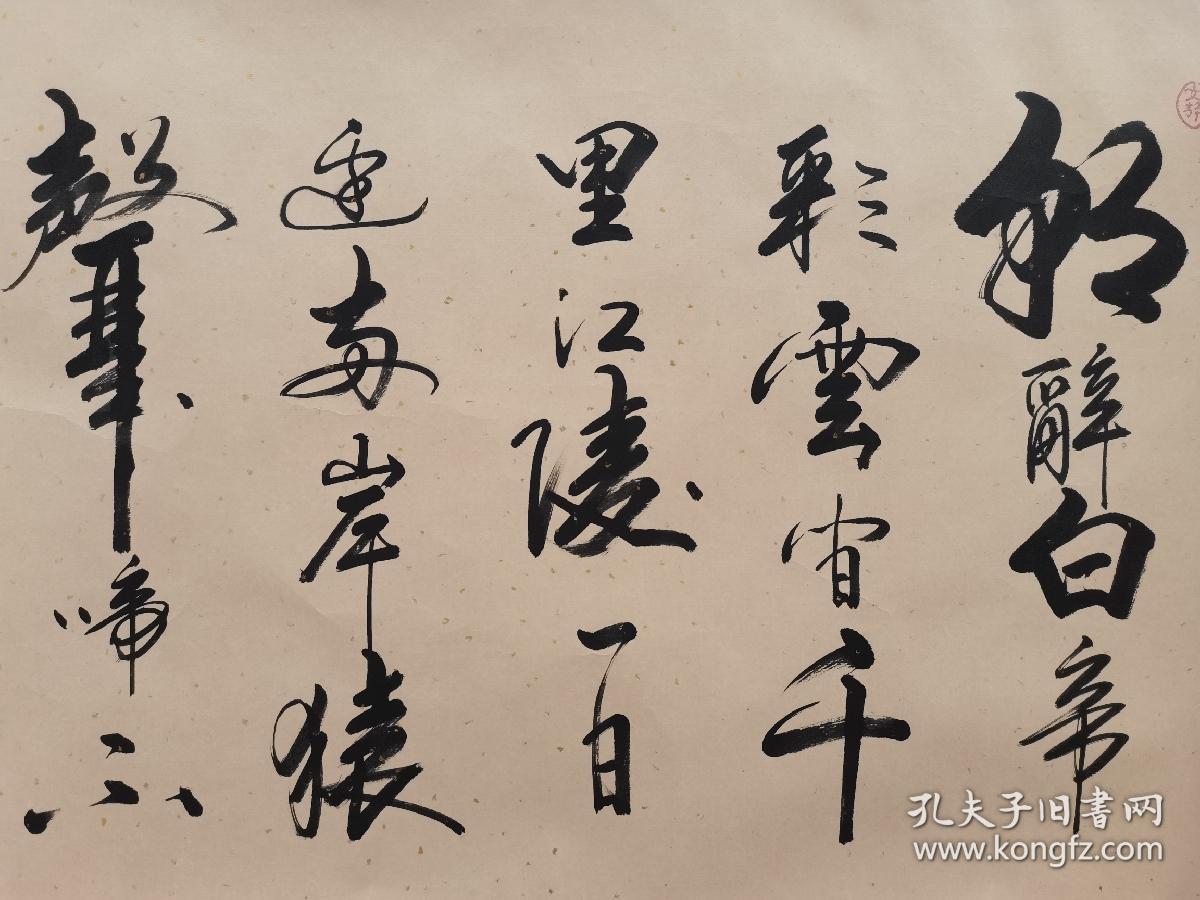 朝辭白帝
彩雲間千
里江陵一日
還兩岸猿
聲啼不
孔夫子旧書网
www.kongfz.com